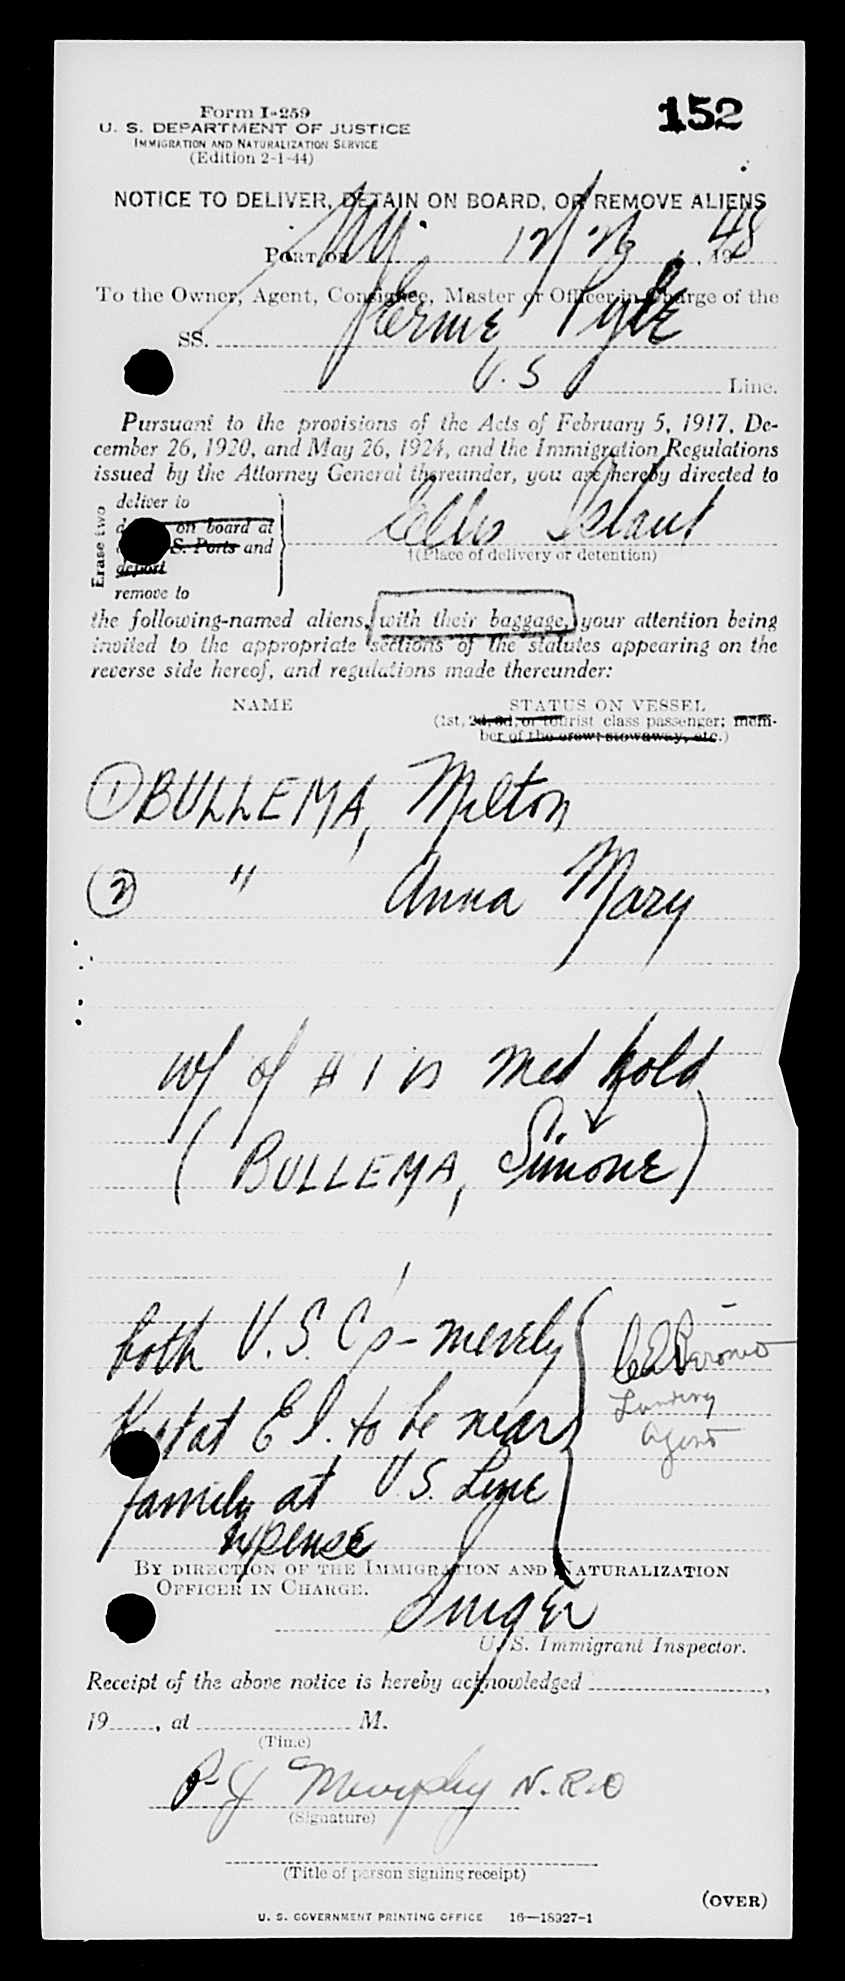 Form I-259
152
U. S. DEPARTMENT OF JUSTICE
IMMIGRATION AND NATURALIZATION SERVICE
(Edition 2-1-44)
NOTICE TO DELIVER, DETAIN ON BOARD, OR REMOVE ALIENS
PORT OF NY. 12/23, 1948
To the Owner, Agent, Consignee, Master or Officer in Charge of the
SS. Ernie Pyle
U.S Line.
Pursuant to the provisions of the Acts of February 5, 1917, De-
cember 26, 1920, and May 26, 1924, and the Immigration Regulations
issued by the Attorney General thereunder, you are hereby directed to
Erase two
deliver to
on board at
S. Ports and
deport
remove to
Ellis Island
†(Place of delivery or detention)
the following-named aliens, with their baggage, your attention being
invited to the appropriate sections of the statutes appearing on the
reverse side hereof, and regulations made thereunder:
NAME STATUS ON VESSEL
(1st, 2d, 3d, or tourist class passenger; mem-
ber of the crew; stowaway, etc.)
① BULLEMA, Milton
② " Anna Mary
w/ of # 1 is med hold
(BULLEMA, Simone)
both U.S.C's - merely
Kept at E I. to be near
family at U.S. Line
expense
Landing
Agent
BY DIRECTION OF THE IMMIGRATION AND NATURALIZATION
OFFICER IN CHARGE.
Singer
U. S. Immigrant Inspector.
Receipt of the above notice is hereby acknowledged
19 , at M.
(Time)
P J Murphy N.R.O
(Signature)
(Title of person signing receipt)
(OVER)
U. S. GOVERNMENT PRINTING OFFICE 16—18327-1